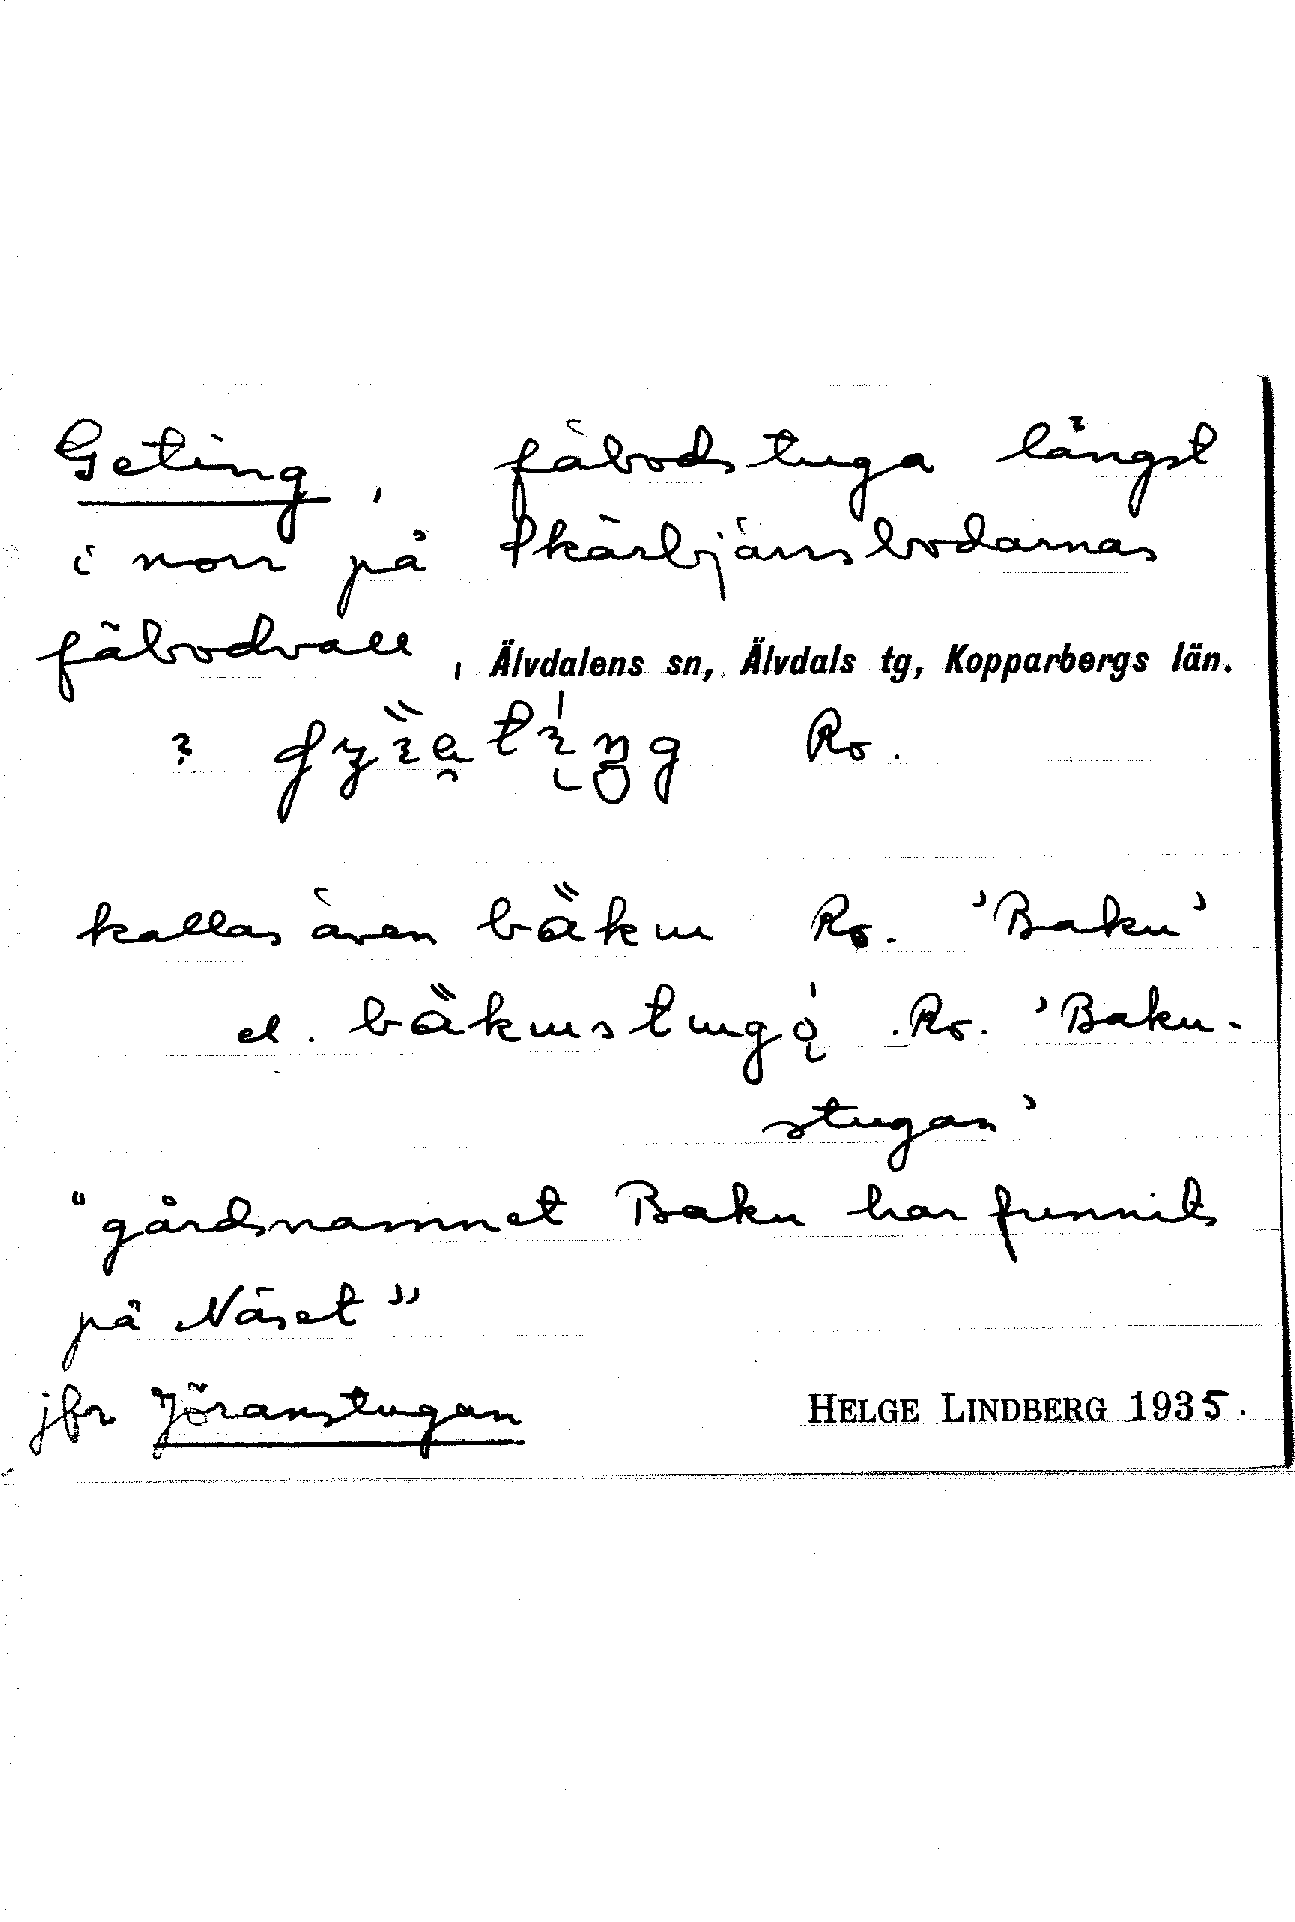 Geting, fäbodstuga längst
i norr på Skärbjärnsbodarnas
fäbodvall, Älvdalens sn, Älvdals tg, Kopparbergs län.
Ro.
kallas även bäku Ro. 'Baku'
el. bäkustugo̜ Ro. 'Baku-
stugan'
"gårdsnamnet Baku har funnits
på Näset"
jfr Jöranstugan HELGE LINDBERG 1935.